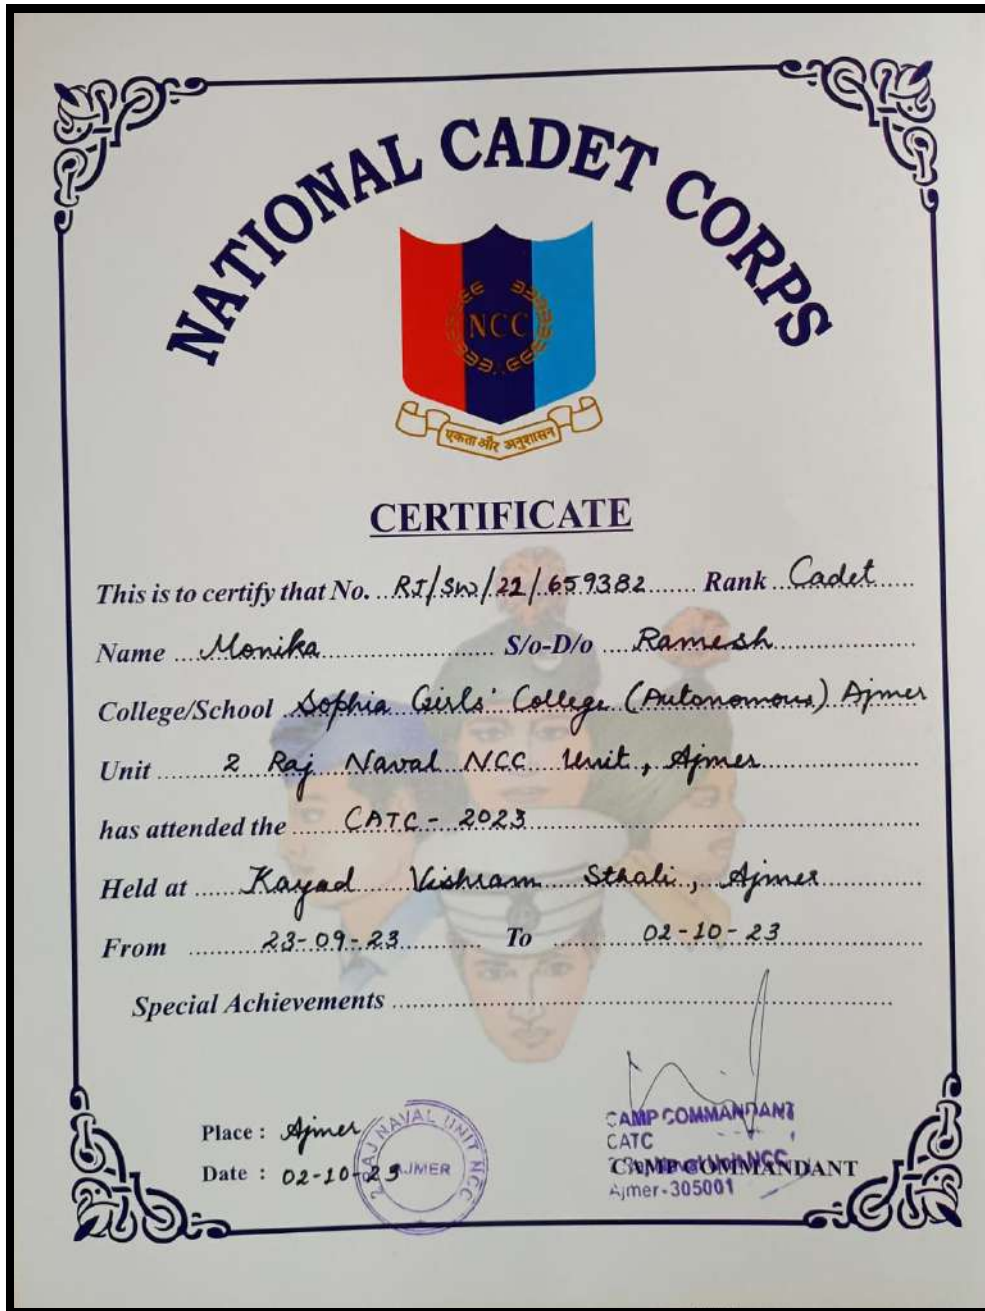 NATIONAL CADET CORPS
NCC
एकता और अनुशासन
CERTIFICATE
This is to certify that No. RJ/SW/22/659382 Rank Cadet
Name Monika S/o-D/o Ramesh
College/School Sophia Girls' College (Autonomous) Ajmer
Unit 2 Raj Naval NCC Unit, Ajmer
has attended the CATC - 2023
Held at Kayad Vishram Sthali, Ajmer
From 23-09-23 To 02-10-23
Special Achievements
Place : Ajmer
Date : 02-10-23
2 RAJ NAVAL UNIT NCC
AJMER
CAMP COMMANDANT
CATC
Naval Unit NCC
CAMP COMMANDANT
Ajmer-305001